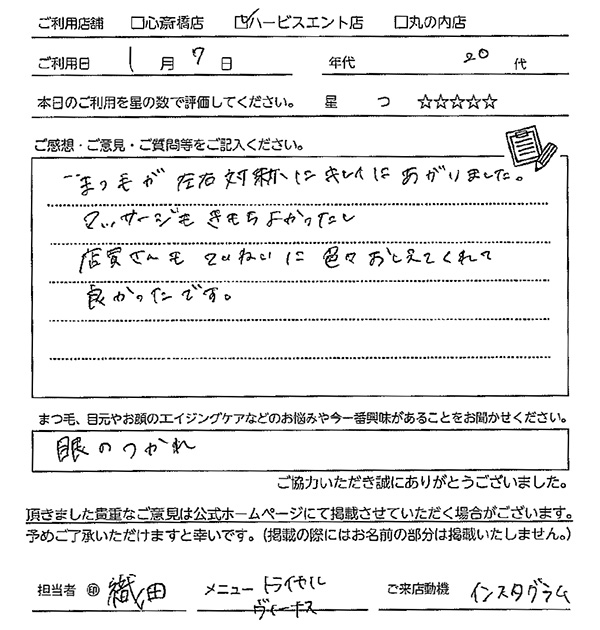 ご利用店舗 □心斎橋店 ☑ハービスエント店 □丸の内店
ご利用日 1月7日 年代 20代
本日のご利用を星の数で評価してください。 星 つ ☆☆☆☆☆
ご感想・ご意見・ご質問等をご記入ください。
まつ毛が左右対称にキレイにあがりました。
マッサージもきもちよかったし
店員さんもていねいに色々おしえてくれて
良かったです。
まつ毛、目元やお顔のエイジングケアなどのお悩みや今一番興味があることをお聞かせください。
眼のつかれ
ご協力いただき誠にありがとうございました。
頂きました貴重なご意見は公式ホームページにて掲載させていただく場合がございます。
予めご了承いただけますと幸いです。(掲載の際にはお名前の部分は掲載いたしません。)
担当者 ㊞ 織田 メニュー トライヤル ご来店動機 インスタグラム
ヴィーナス